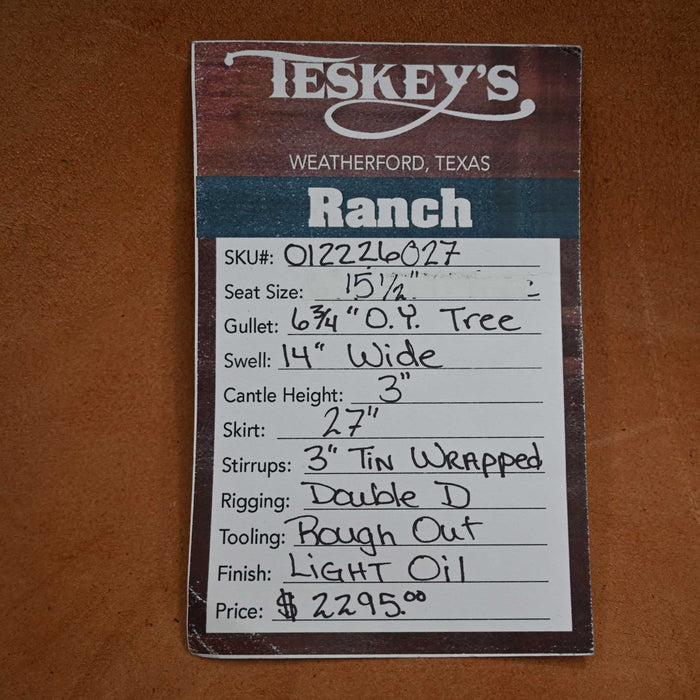 TESKEY'S
WEATHERFORD, TEXAS
Ranch
SKU#: 012226027
Seat Size: 15 1/2"
Gullet: 6 3/4" O.Y. Tree
Swell: 14" Wide
Cantle Height: 3"
Skirt: 27"
Stirrups: 3" TiN WRApped
Rigging: Double D
Tooling: Rough Out
Finish: LiGHT Oil
Price: $ 2295.00